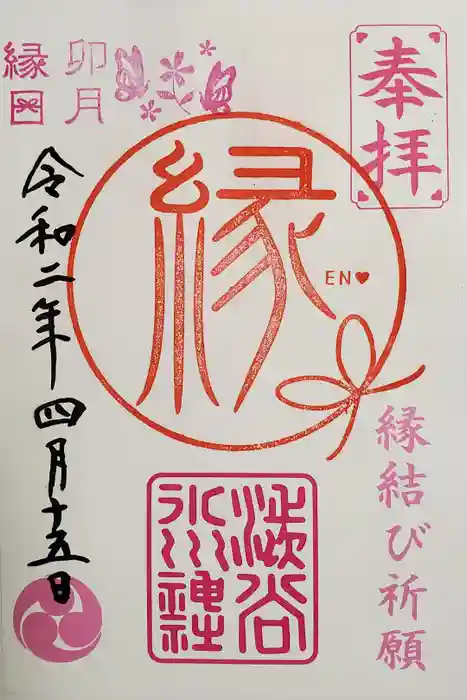 奉拝
卯月
縁日
縁
EN♥
縁結び祈願
渋谷
氷川神社
令和二年四月十五日